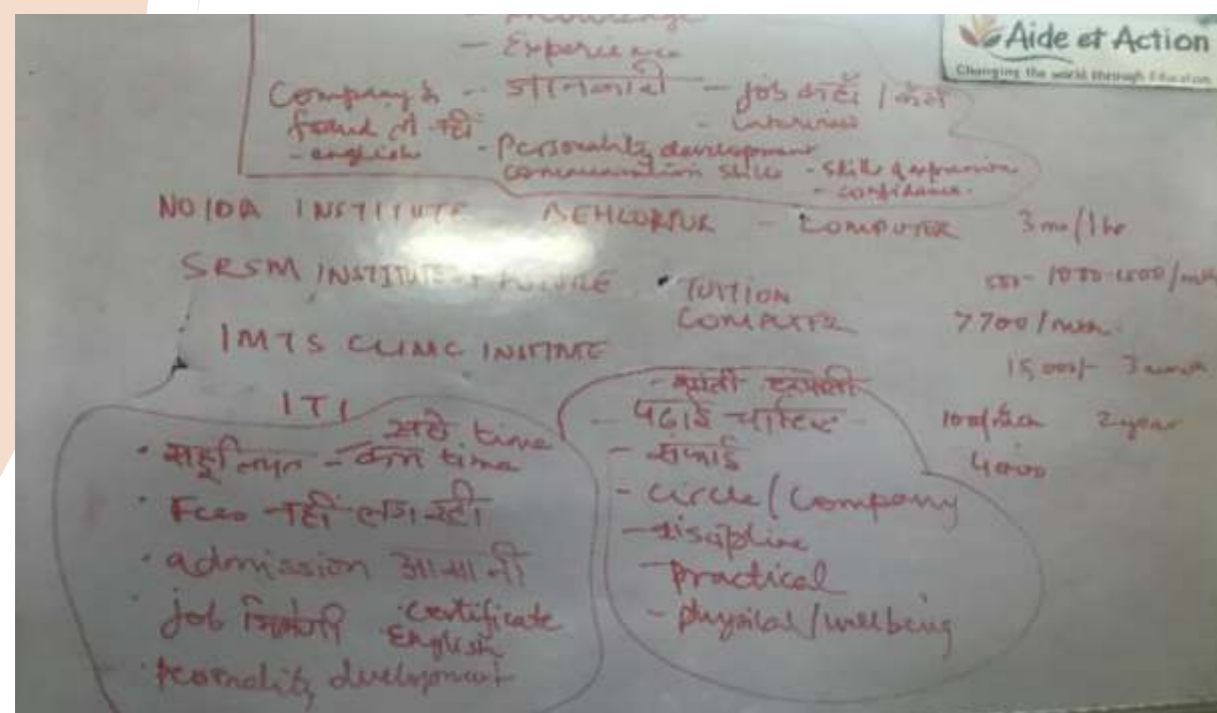 Knowledge
Aide et Action
Changing the world through Education
- Experience
Company के - जानकारी - job कहाँ / कैसे
fraud तो नहीं - interview
- english - Personality development
communication skills - skills of expression
- confidence.
NOIDA INSTITUTE - BEHLOLPUR - COMPUTER 3 mo/1 hr
SRSM INSTITUTE • TUITION 500- 1000-1500/mth
COMPUTER 7700/mth.
IMTS INSTITUTE 15,000/- 3 month
ITI
सही time
• सहूलियत - कम time
• Fees नहीं लग रही
• admission आसानी
• job मिलेगी certificate
English
• personality development
- पढ़ाई चाहिए 2 year
- सफाई 4000
- circle/company
- discipline
- Practical
- physical/wellbeing